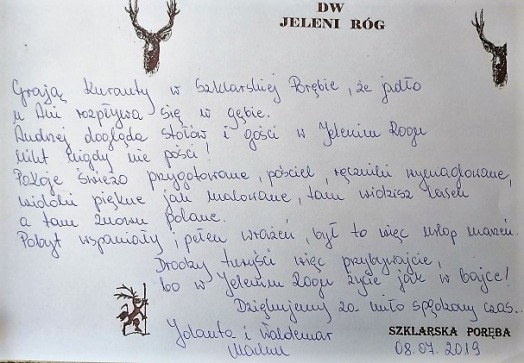 DW
JELENI RÓG
Grają kuranty w Szklarskiej Porębie, że jadło
u Ani rozpływa się w gębie.
Andrzej dogląda stołów i gości w Jelenim Rogu
nikt nigdy nie pości!
Pokoje świeżo przygotowane, pościel, ręczniki wymaglowane,
widoki piękne jak malowane, tam widzisz lasek
a tam znowu Polanę.
Pobyt wspaniały i pełen wrażeń, był to więc urlop marzeń.
Drodzy turyści więc przybywajcie,
bo w Jelenim Rogu życie jak w bajce!
Dziękujemy za miło spędzony czas..
Jolanta i Waldemar
SZKLARSKA PORĘBA
08.07.2019